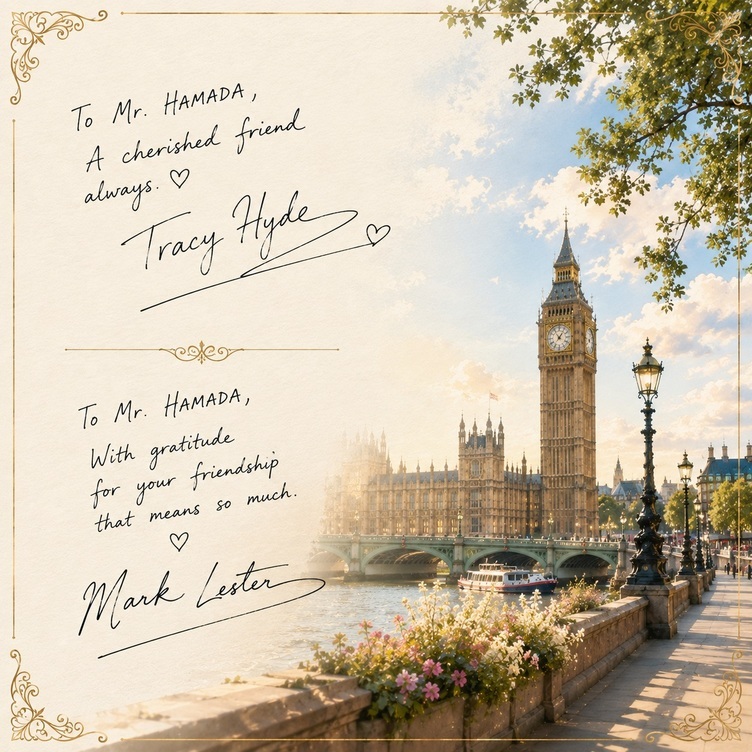 To Mr. HAMADA,
A cherished friend
always. ♡
Tracy Hyde
To Mr. HAMADA,
With gratitude
for your friendship
that means so much.
♡
Mark Lester